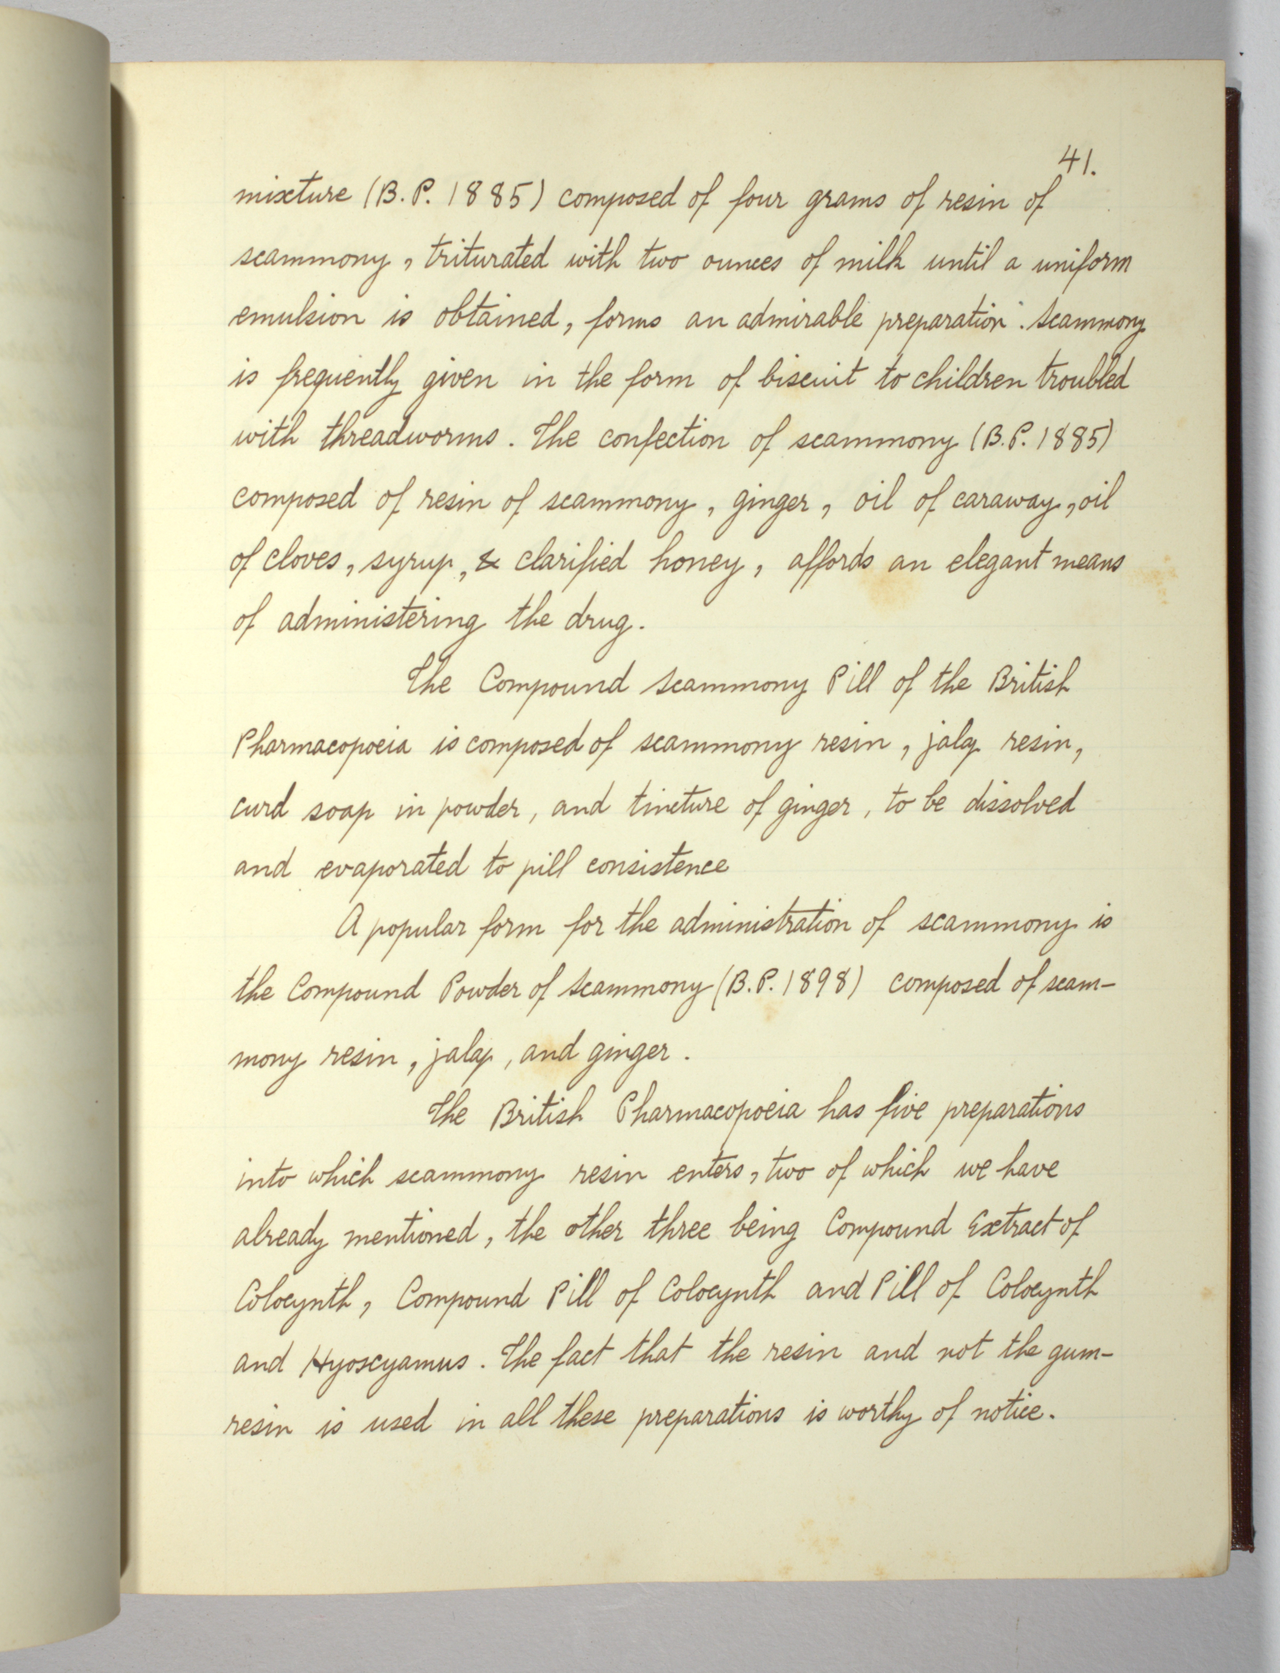 41.
mixture (B.P. 1885) composed of four grams of resin of
scammony, triturated with two ounces of milk until a uniform
emulsion is obtained, forms an admirable preparation. Scammony
is frequently given in the form of biscuit to children troubled
with threadworms. The confection of scammony (B.P. 1885)
composed of resin of scammony, ginger, oil of caraway, oil
of cloves, syrup, & clarified honey, affords an elegant means
of administering the drug.
The Compound Scammony Pill of the British
Pharmacopoeia is composed of scammony resin, jalap resin,
curd soap in powder, and tincture of ginger, to be dissolved
and evaporated to pill consistence
A popular form for the administration of scammony is
the Compound Powder of Scammony (B.P. 1898) composed of scam-
mony resin, jalap, and ginger.
The British Pharmacopoeia has five preparations
into which scammony resin enters, two of which we have
already mentioned, the other three being Compound Extract of
Colocynth, Compound Pill of Colocynth and Pill of Colocynth
and Hyoscyamus. The fact that the resin and not the gum-
resin is used in all these preparations is worthy of notice.